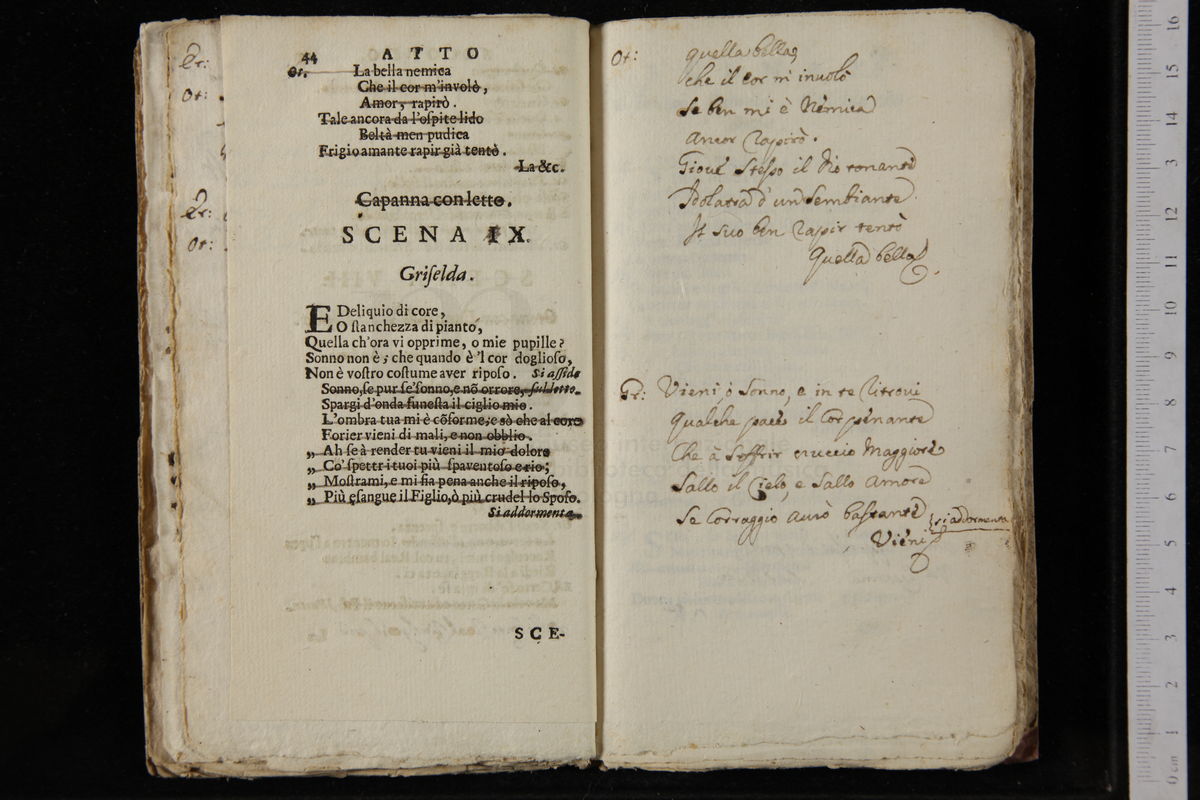 44
ATTO
Ot.
La bella nemica
Che il cor m'involò,
Amor, rapirò.
Tale ancora da l'oſpite lido
Beltà men pudica
Frigio amante rapir già tentò.
La &c.
Capanna con letto.
SCENA IX.
Griſelda.
E Deliquio di core,
O ſtanchezza di pianto,
Quella ch'ora vi opprime, o mie pupille?
Sonno non è; che quando è 'l cor doglioſo,
Non è voſtro coſtume aver ripoſo. Si aſſide
Sonno, ſe pur ſe' ſonno, e nõ orrore, ſul letto.
Spargi d'onda funeſta il ciglio mio.
L'ombra tua mi è cõforme, e sò che al core
Forier vieni di mali, e non obblio.
„ Ah ſe à render tu vieni il mio dolore
„ Co' ſpettri tuoi più ſpaventoſo e rio;
„ Moſtrami, e mi ſia pena anche il ripoſo,
„ Più eſangue il Figlio, ò più crudel lo Spoſo.
Si addormenta.
SCE-
Gr:
Ot:
Gr:
Ot:
Ot:
quella bella,
che il cor m'involò
Se ben mi è Nemica
Ancor rapirò.
Giove Stesso il Dio tonante
Idolatra d'un Sembiante
Il suo ben rapir tentò
Quella bella
Gr: Vieni, ò Sonno, e in te ritrovi
Qualche pace il Cor penante
Che à Soffrir cruccio Maggiore
Sallo il Cielo, e Sallo Amore
Se Corraggio aurò bastante
si addormenta
Vieni